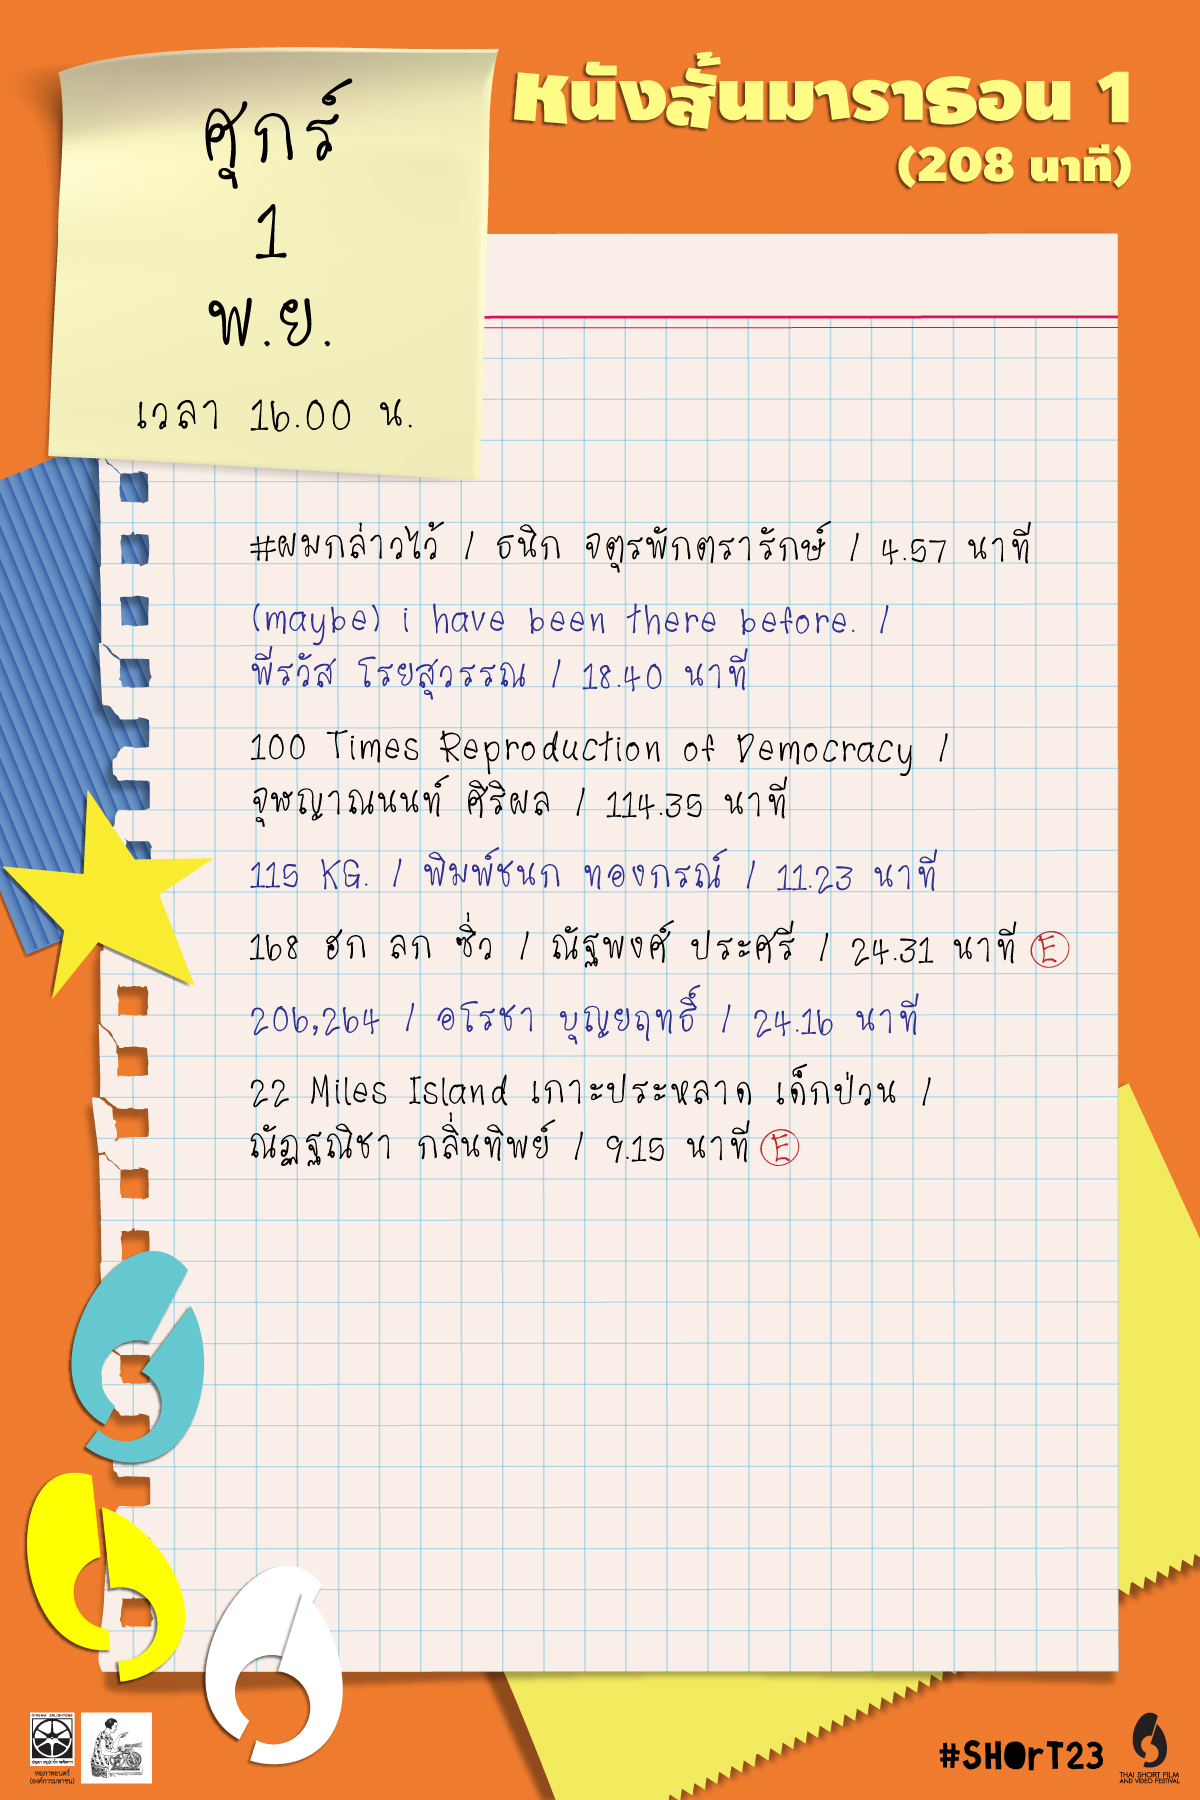 ศุกร์
1
พ.ย.
เวลา 16.00 น.
หนังสั้นมาราธอน 1
(208 นาที)
#ผมกล่าวไว้ / ธนิก จตุรพักตรารักษ์ / 4.57 นาที
(maybe) i have been there before. /
พีรวัส โรยสุวรรณ / 18.40 นาที
100 Times Reproduction of Democracy /
จุฬญาณนนท์ ศิริผล / 114.35 นาที
115 KG. / พิมพ์ชนก ทองกรณ์ / 11.23 นาที
168 ฮก ลก ซิ่ว / ณัฐพงศ์ ประศรี / 24.31 นาที E
206,264 / อโรชา บุญยฤทธิ์ / 24.16 นาที
22 Miles Island เกาะประหลาด เด็กป่วน /
ณัฏฐณิชา กลิ่นทิพย์ / 9.15 นาที E
CINEMA ENLIGHTENS
หอภาพยนตร์
(องค์การมหาชน)
#SHOrT23
THAI SHORT FILM
AND VIDEO FESTIVAL